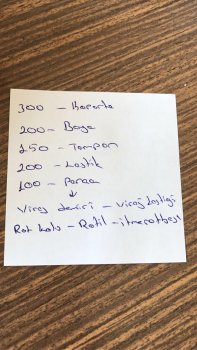 300 – Kaporta
200 – Boya
150 – Tampon
200 – Lastik
100 – Parça
↓
Viraj demiri – Viraj lastiği
Rot kolu – Rotil – itme rotbaşı